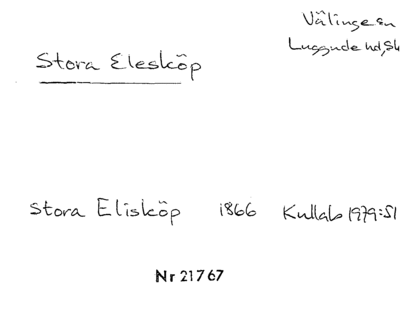 Välinge sn
Luggude hd, Sk
Stora Elesköp
Stora Elisköp 1866 Kullab 1979:51
Nr 21767